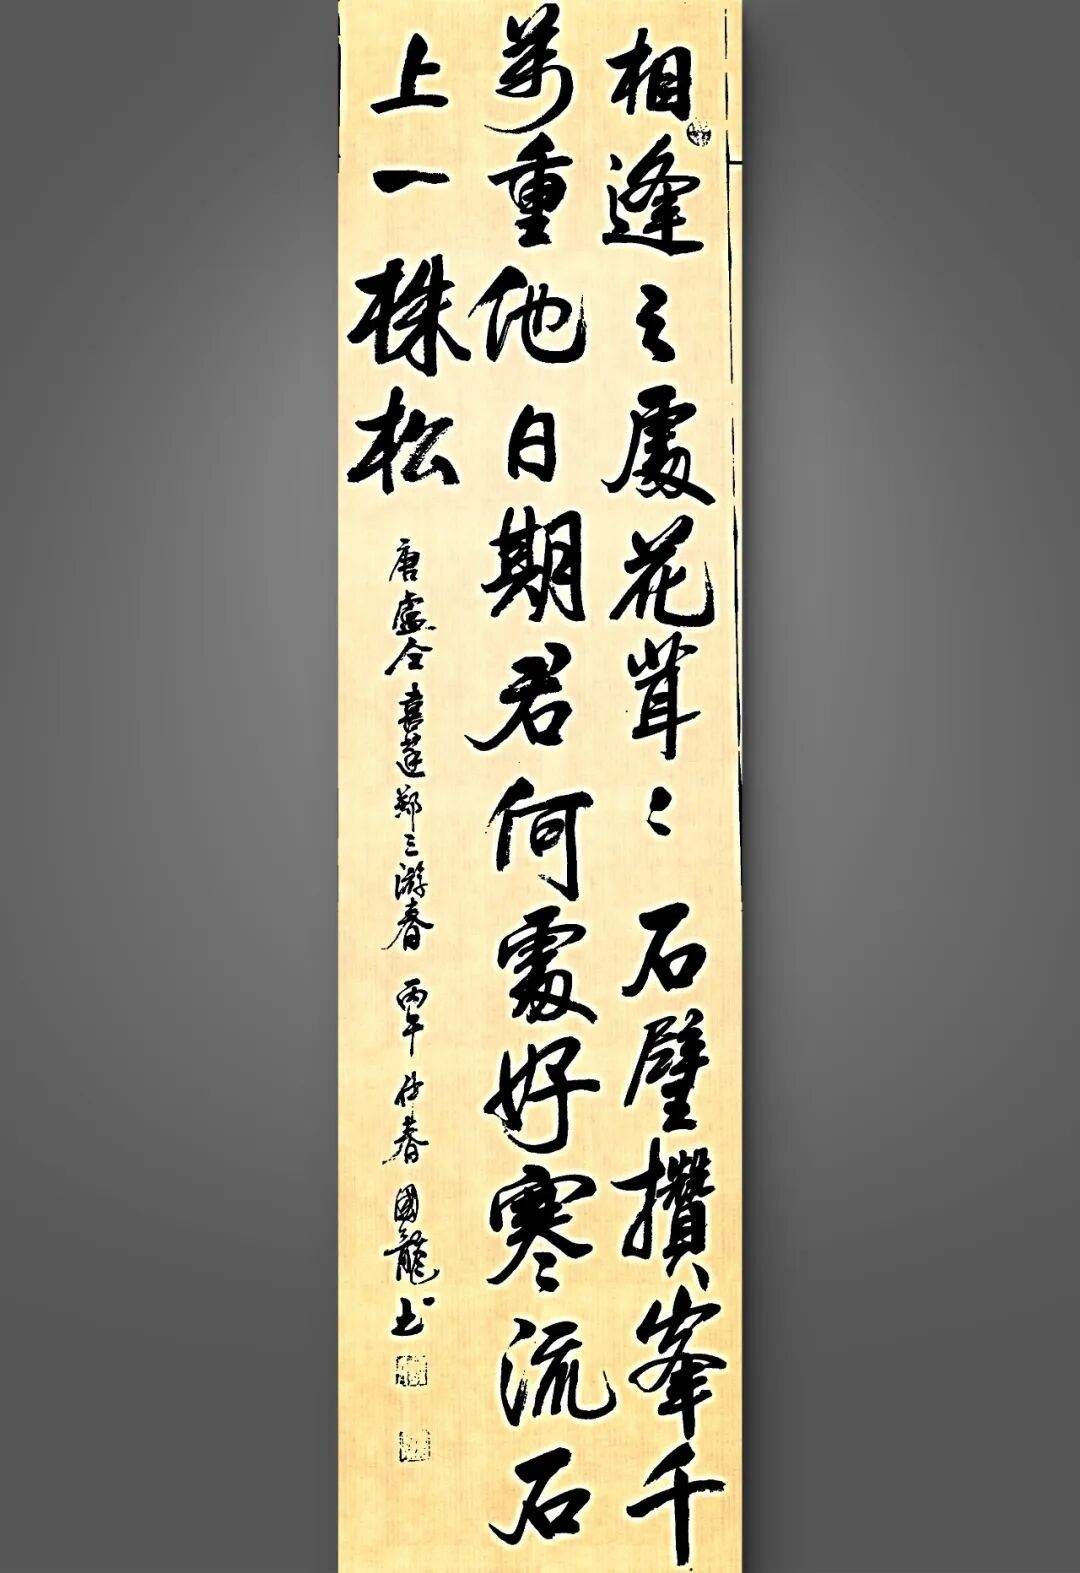 相逢之處花茸〻石壁攢峯千
萬重他日期君何處好寒流石
上一株松
唐盧仝喜逢郑三游春 丙午仲春 國龍书